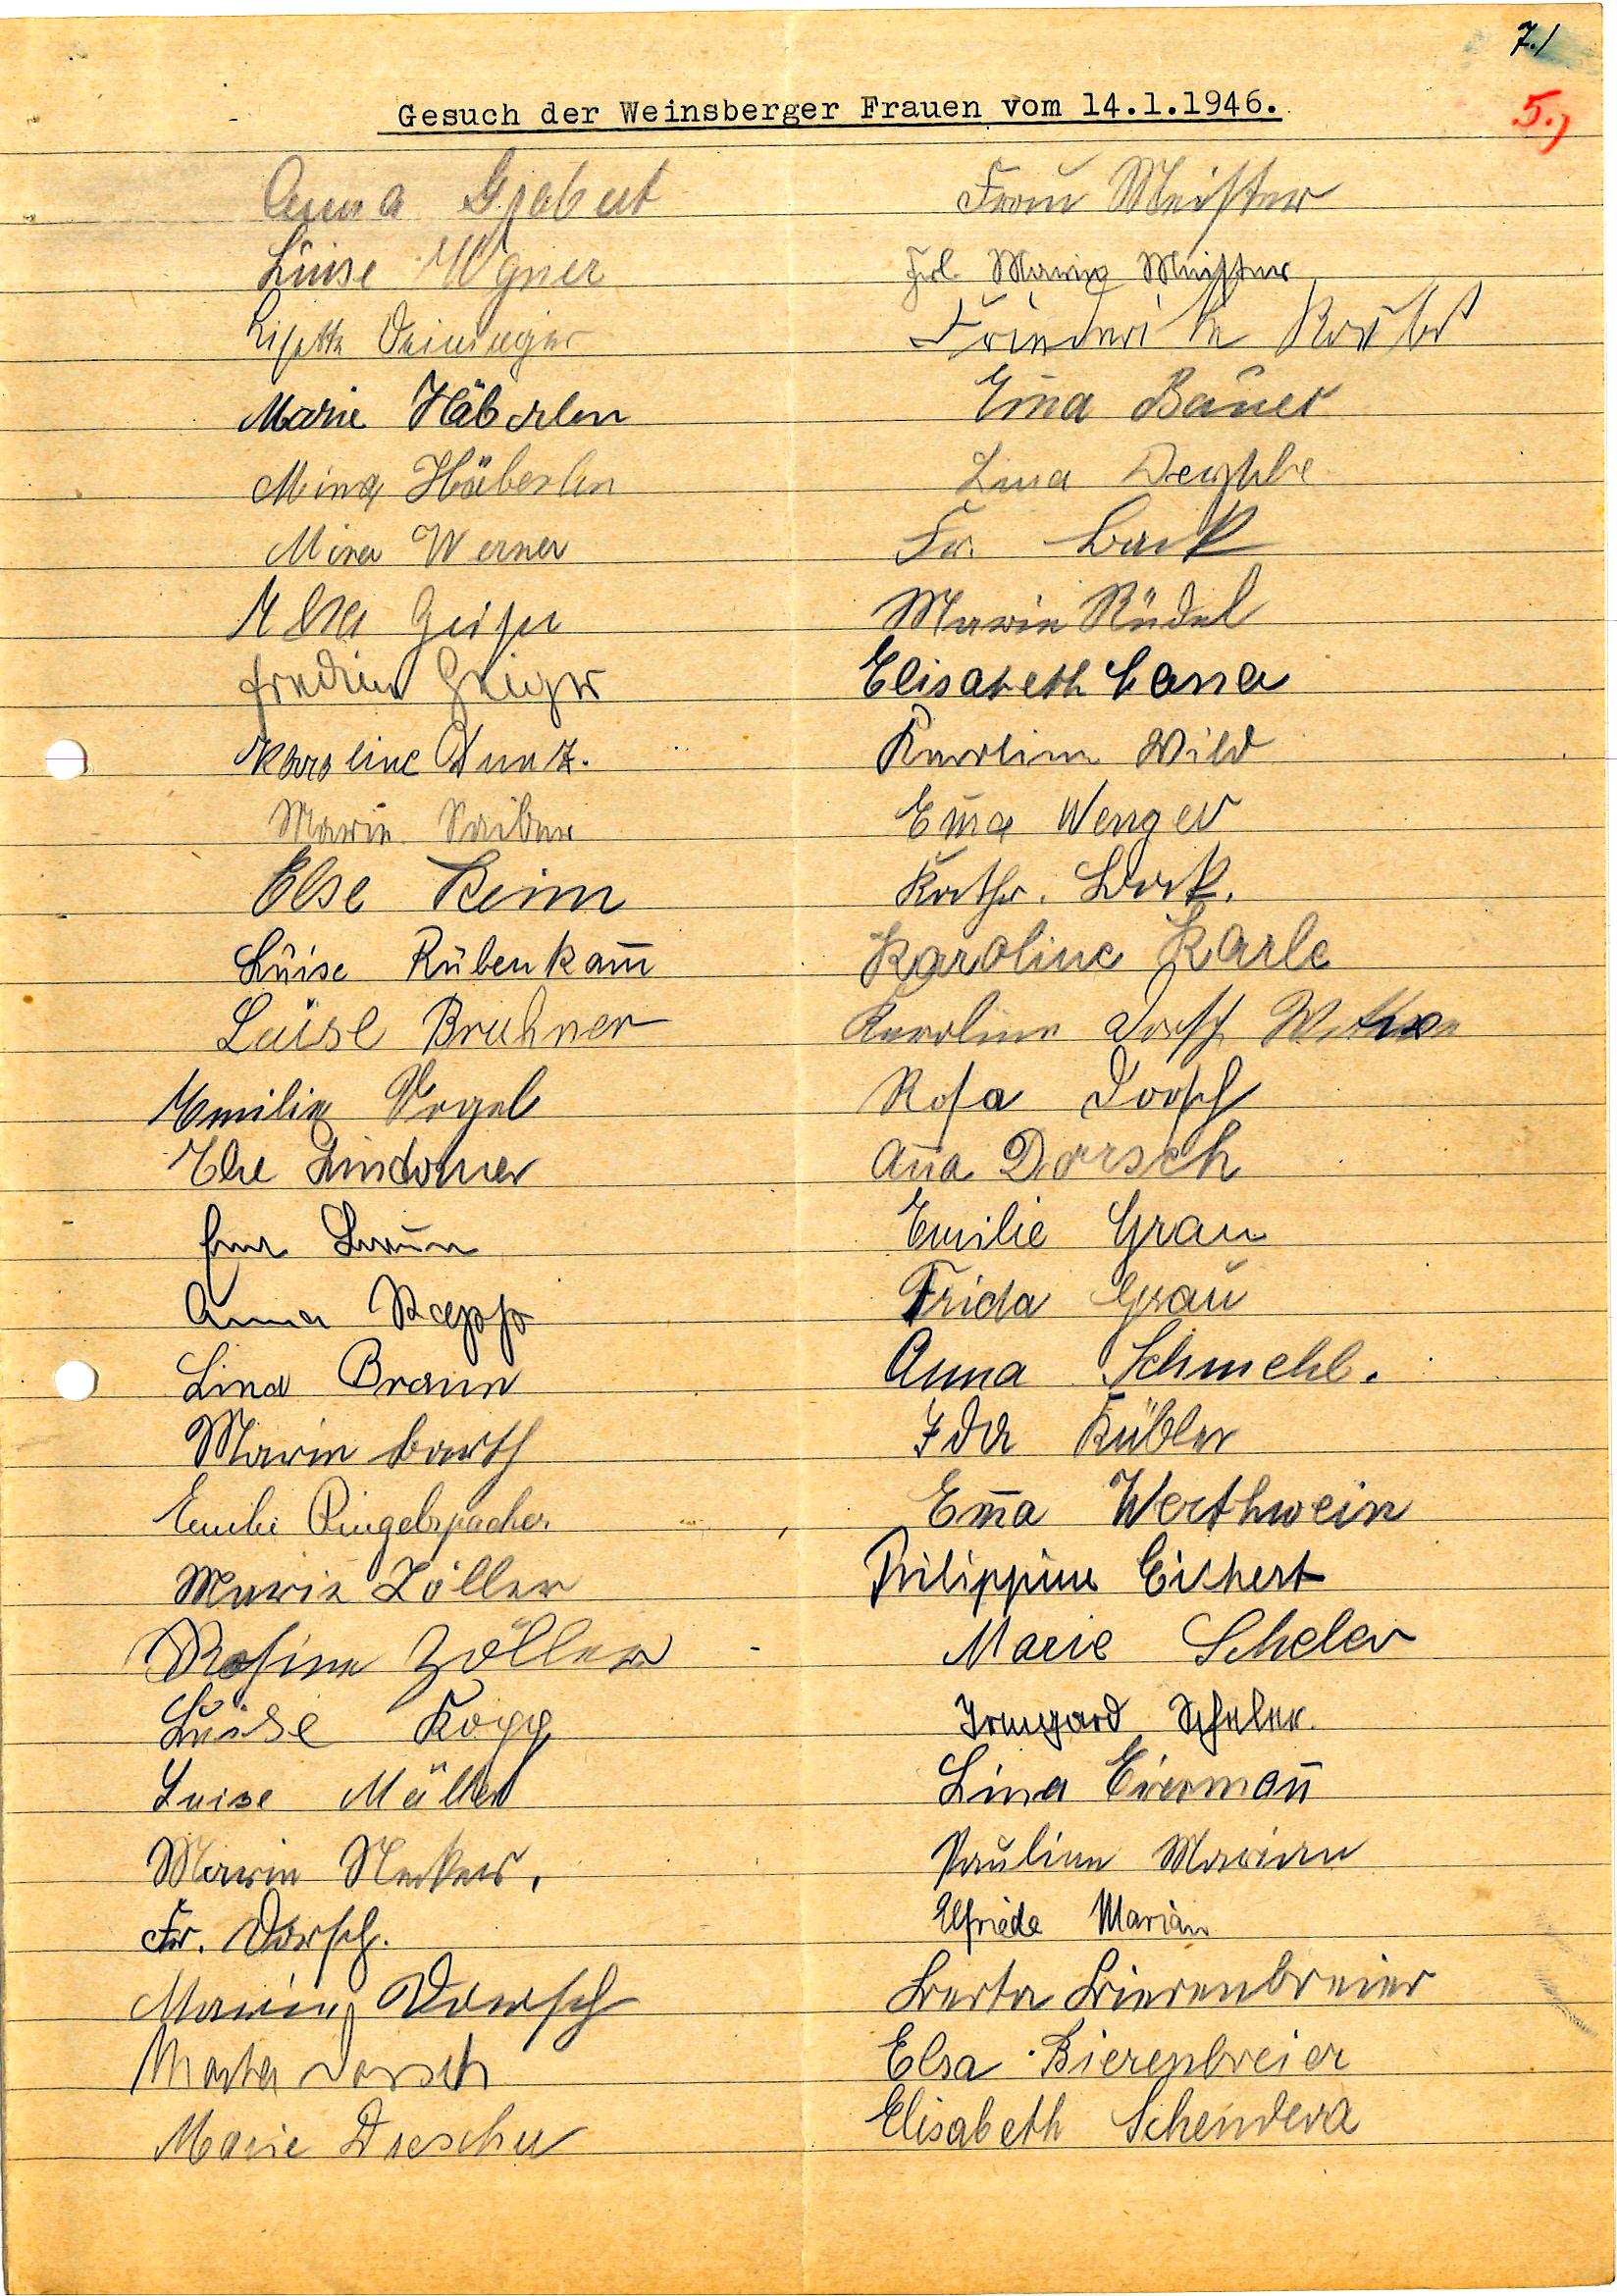 7./
5.)
Gesuch der Weinsberger Frauen vom 14.1.1946.
Anna Grabert
Luise Wgner
Lisette Deininger
Marie Häberlen
Mina Häberlen
Mina Werner
Elsa Geiger
Geiger
Karoline Kunz.
Marie
Else Keim
Luise Rübenkam̅
Luise Bruhner
Emilie Vogel
Else Lindauer
Braun
Anna Rapp
Lina Braun
Marie Barth
Emilie Ringelspacher
Marie Zöller
Rosine Zöller
Luise Kopp
Luise Müller
Marie Neker.
Fr. Dorsch.
Marie Dorsch
Marta Dorsch
Marie Drescher
Frau Meister
Frl. Marie Meister
Friederike
Em̅a Bauer
Lina
Fr. Back
Marie Rüdel
Elisabeth Cana
Karoline Wild
Em̅a Wenger
Kathr. Bork.
Karoline Karle
Karoline Dorsch Witwe
Rosa Dorsch
An̅a Dorsch
Emilie Grau
Frida Grau
Anna Schmehl.
Ida Kübler
Em̅a Werthwein
Philippine Eichert
Marie Scheler
Irmgard Scheler.
Lina Eierman̅
Pauline Marian
Elfriede Marian
Berta Bierenbreier
Elsa Bierenbreier
Elisabeth Schendera